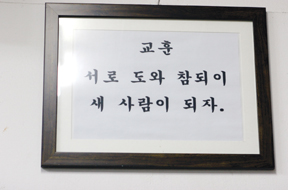 교훈
서로 도와 참되이
새 사람이 되자.